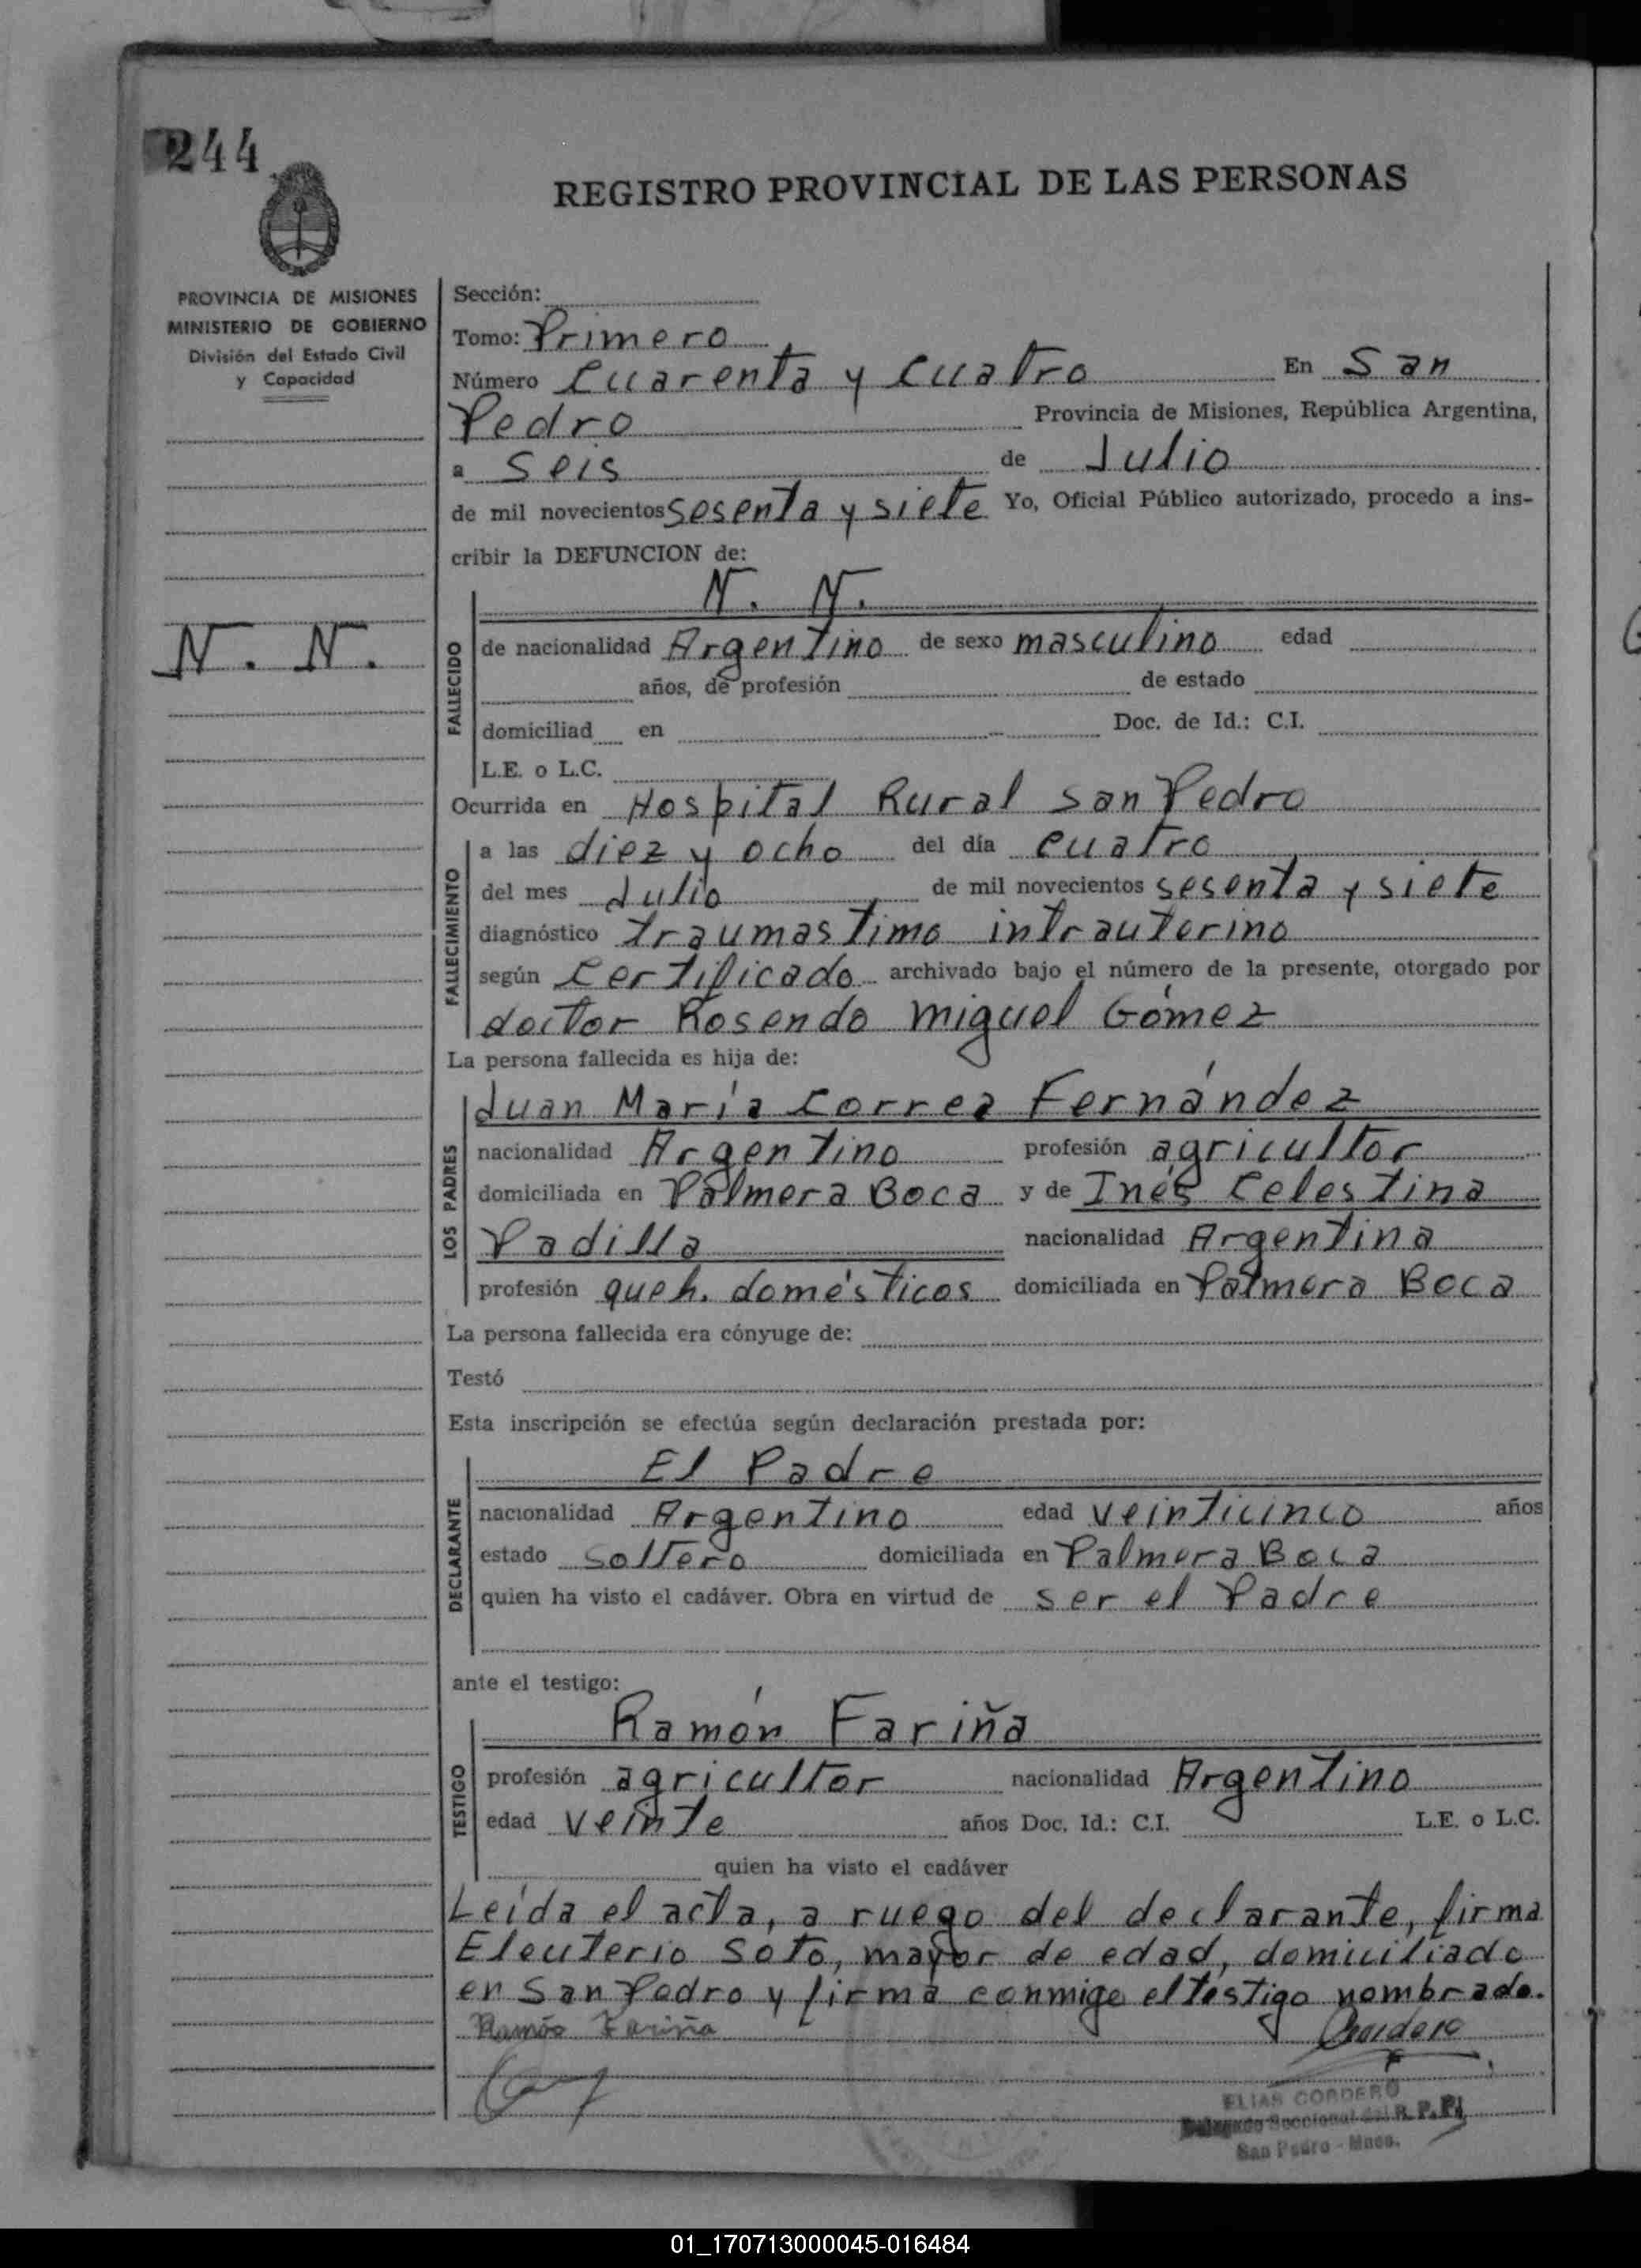 244
REGISTRO PROVINCIAL DE LAS PERSONAS
PROVINCIA DE MISIONES
MINISTERIO DE GOBIERNO
División del Estado Civil
y Capacidad
N. N.
Sección:
Tomo: Primero
Número Cuarenta y cuatro En San
Pedro Provincia de Misiones, República Argentina,
a seis de Julio
de mil novecientos sesenta y siete Yo, Oficial Público autorizado, procedo a ins-
cribir la DEFUNCION de:
N. N.
FALLECIDO
de nacionalidad Argentino de sexo masculino edad
años, de profesión de estado
domiciliad en Doc. de Id.: C.I.
L.E. o L.C.
Ocurrida en Hospital Rural San Pedro
FALLECIMIENTO
a las diez y ocho del día cuatro
del mes Julio de mil novecientos sesenta y siete
diagnóstico traumastimo intrauterino
según Certificado archivado bajo el número de la presente, otorgado por
doctor Rosendo Miguel Gómez
La persona fallecida es hija de:
LOS PADRES
Juan María Correa Fernández
nacionalidad Argentino profesión agricultor
domiciliada en Palmera Boca y de Inés Celestina
Padilla nacionalidad Argentina
profesión queh. domésticos domiciliada en Palmera Boca
La persona fallecida era cónyuge de:
Testó
Esta inscripción se efectúa según declaración prestada por:
DECLARANTE
El Padre
nacionalidad Argentino edad veinticinco años
estado soltero domiciliada en Palmera Boca
quien ha visto el cadáver. Obra en virtud de ser el Padre
ante el testigo:
TESTIGO
Ramón Fariña
profesión agricultor nacionalidad Argentino
edad veinte años Doc. Id.: C.I. L.E. o L.C.
quien ha visto el cadáver
Leída el acta, a ruego del declarante, firma
Eleuterio Soto, mayor de edad, domiciliado
en San Pedro y firma conmigo el testigo nombrado.
Ramón Fariña
ELIAS CORDERO
Delegado Seccional del R. P. P.
San Pedro - Mnes.
01_170713000045-016484